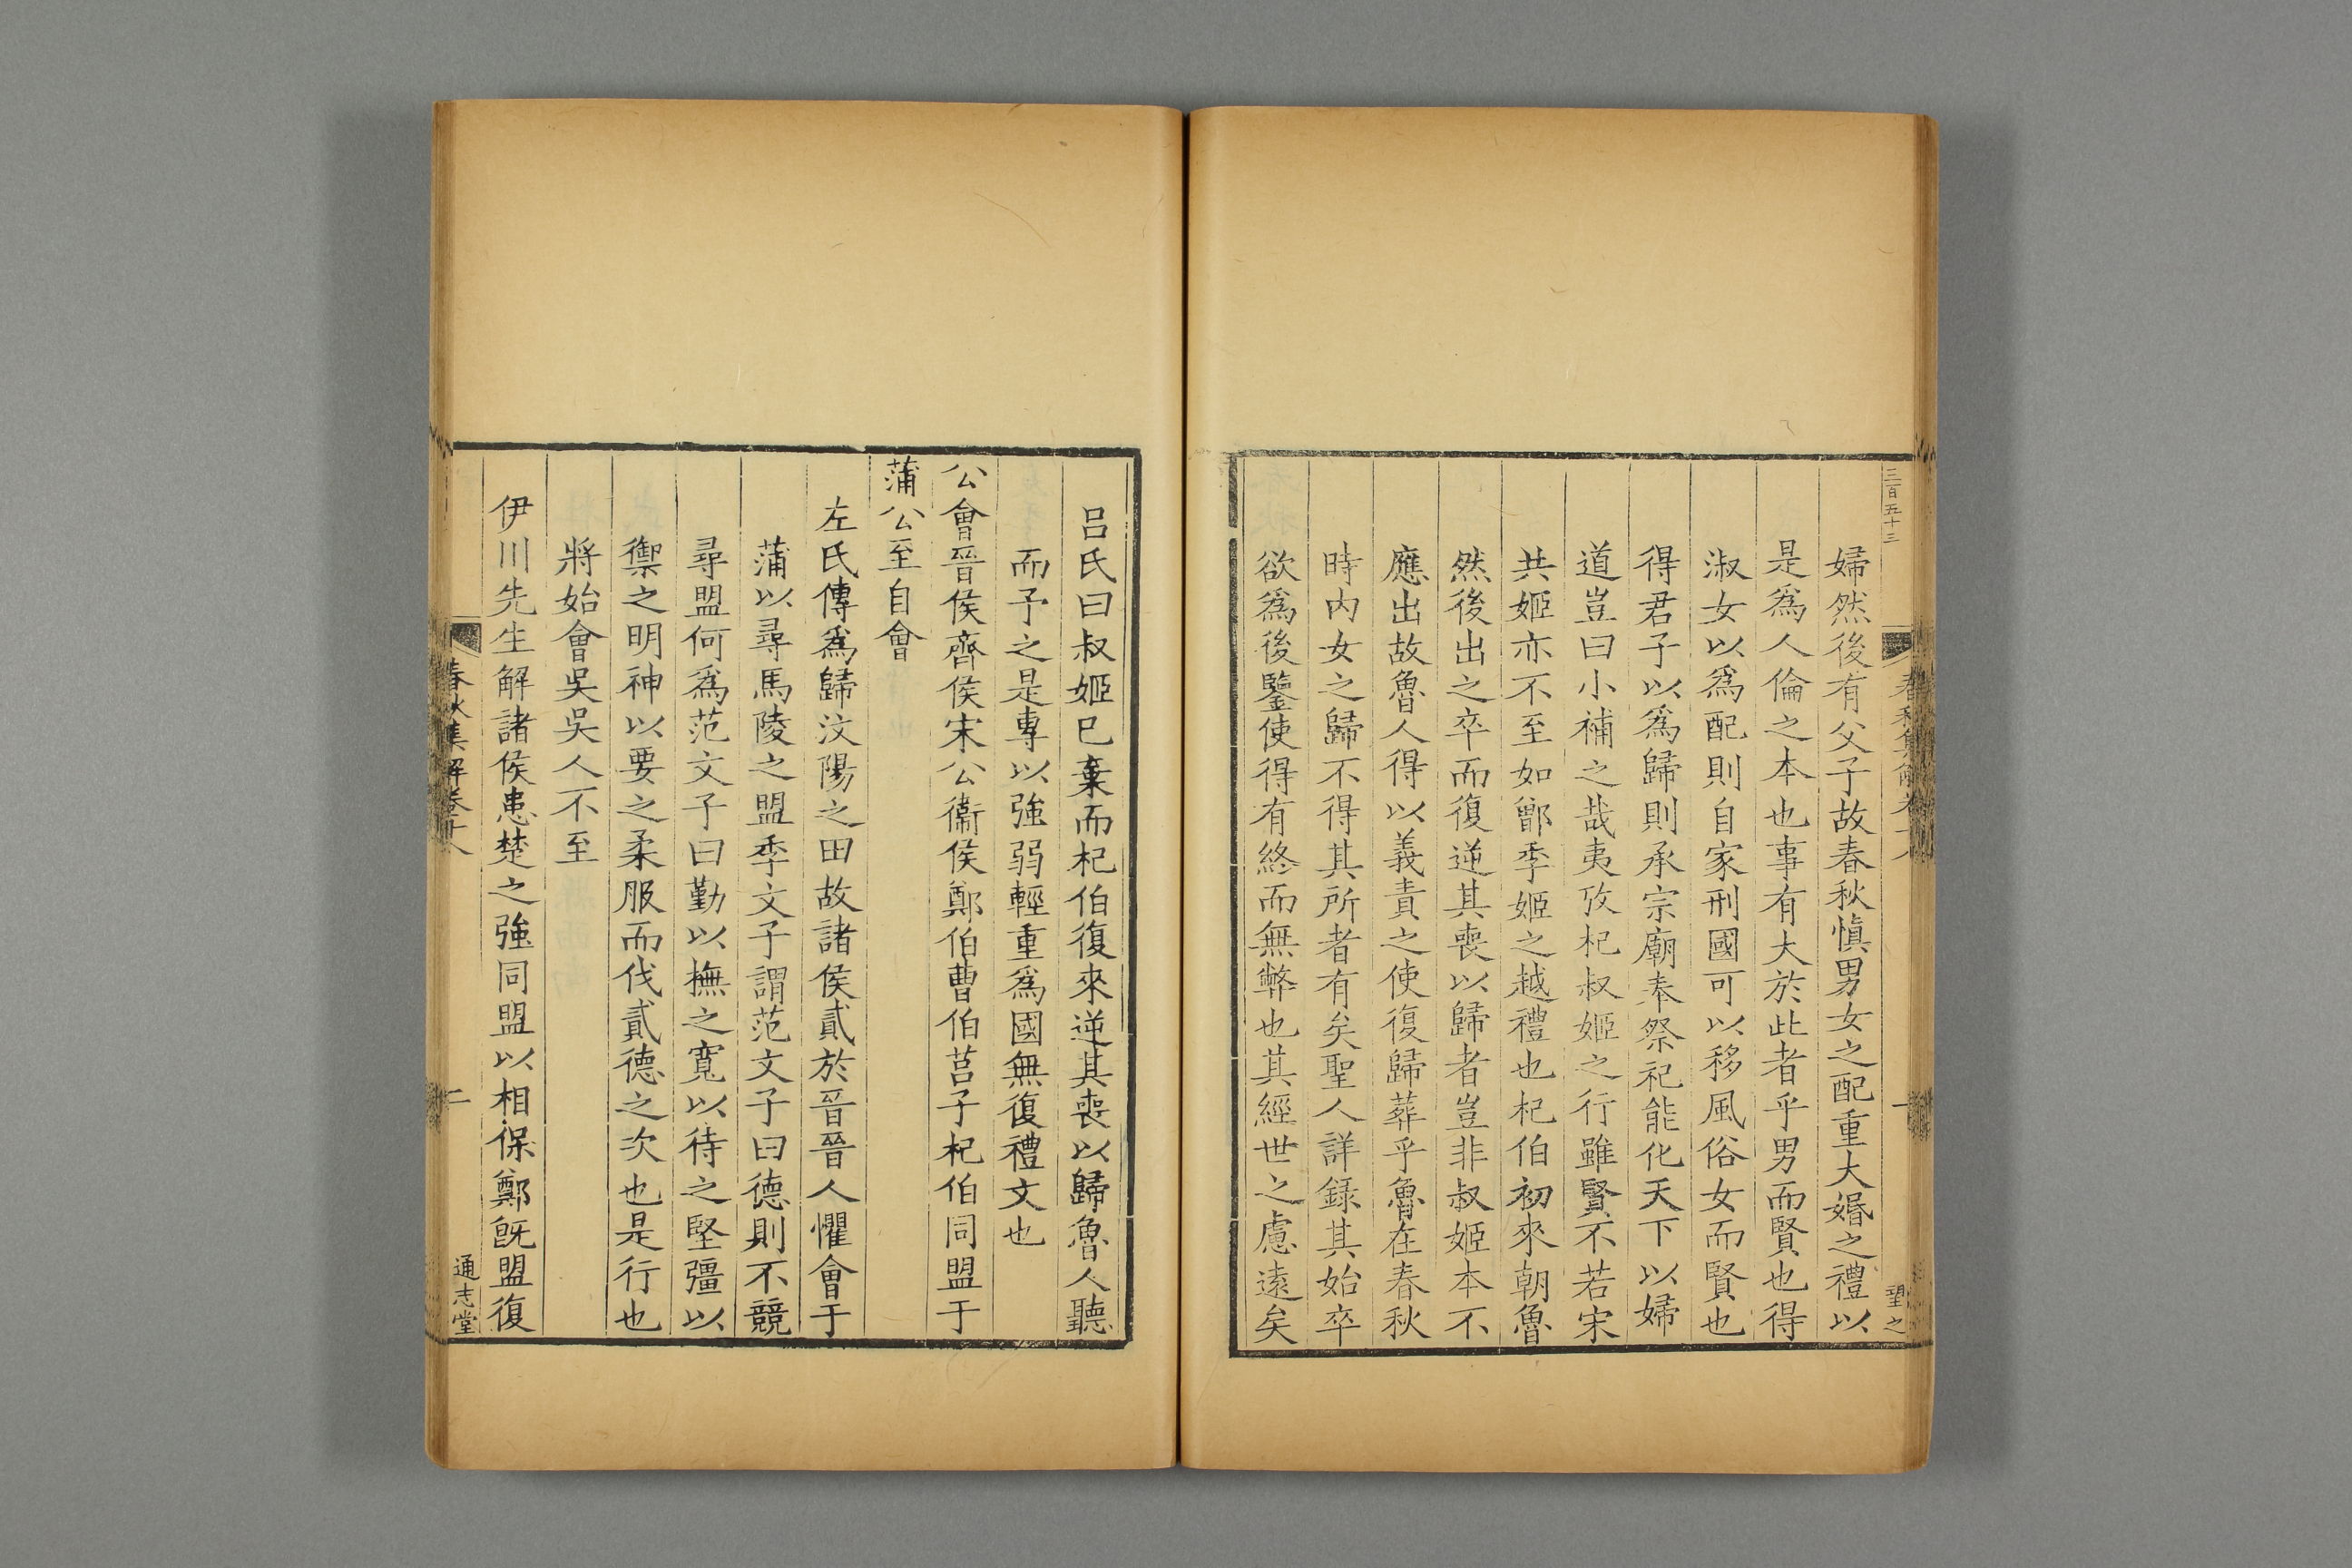 三百五十三
春秋集解卷十八
一
望之
婦然後有父子故春秋慎男女之配重大婚之禮以
是爲人倫之本也事有大於此者乎男而賢也得
淑女以爲配則自家刑國可以移風俗女而賢也
得君子以爲歸則承宗廟奉祭祀能化天下以婦
道豈曰小補之哉夷攷杞叔姬之行雖賢不若宋
共姬亦不至如鄫季姬之越禮也杞伯初來朝魯
然後出之卒而復逆其喪以歸者豈非叔姬本不
應出故魯人得以義責之使復歸葬乎魯在春秋
時内女之歸不得其所者有矣聖人詳録其始卒
欲爲後鑒使得有終而無弊也其經世之慮遠矣
吕氏曰叔姬已棄而杞伯復來逆其喪以歸魯人聽
而予之是專以強弱輕重爲國無復禮文也
公會晉侯齊侯宋公衞侯鄭伯曹伯莒子杞伯同盟于
蒲公至自會
左氏傳爲歸汶陽之田故諸侯貳於晉晉人懼會于
蒲以尋馬陵之盟季文子謂范文子曰德則不競
尋盟何爲范文子曰勤以撫之寬以待之堅彊以
禦之明神以要之柔服而伐貳德之次也是行也
將始會吳吳人不至
伊川先生解諸侯患楚之強同盟以相保鄭旣盟復
春秋集解卷十八
二
通志堂